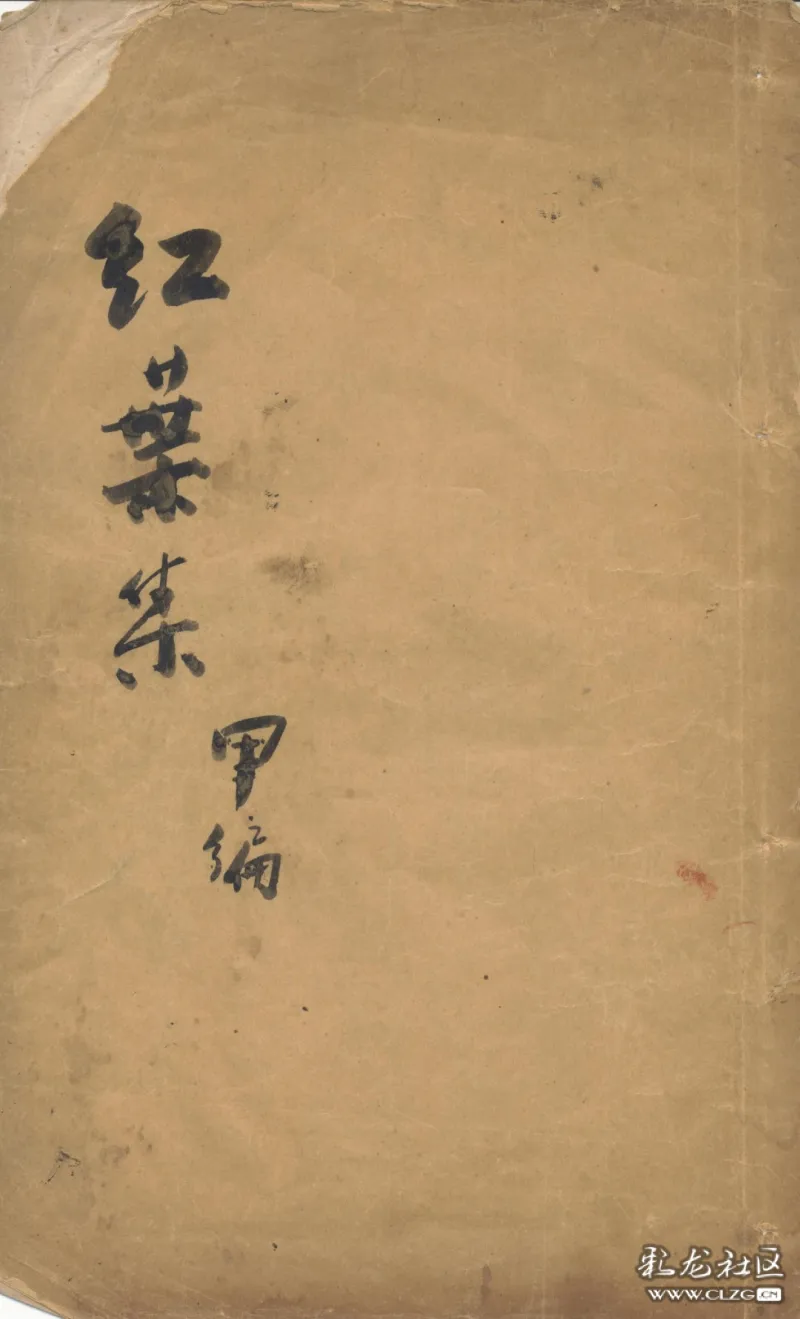 紅葉集
甲編
彩龙社区
WWW.CLZG.CN